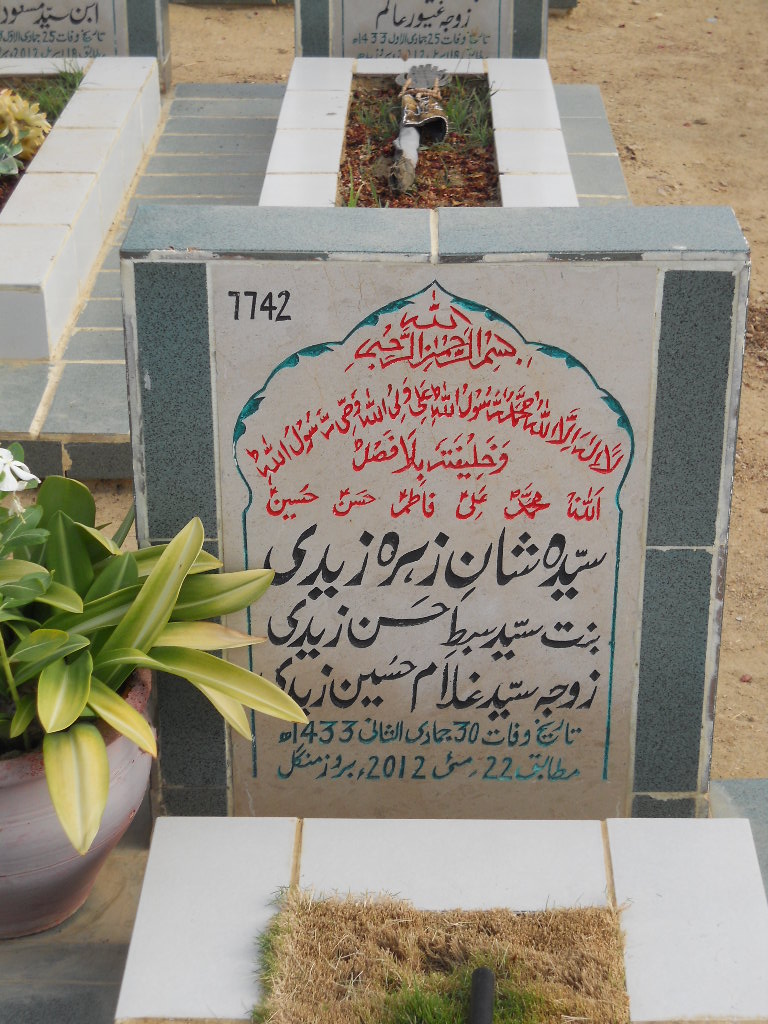 ابن سیّد مسعود
تاریخ وفات 25 جمادی الاول
زوجہ غیور عالم
تاریخ وفات 25 جمادی الاول 1433ھ
7742
الله
بسم الله الرحمن الرحيم
لَا اِلٰهَ اِلَّا اللهُ مُحَمَّدٌ رَّسُوْلُ اللهِ عَلِیٌّ وَلِیُّ اللهِ وَصِیُّ رَسُوْلِ اللهِ
وَخَلِیْفَتُهٗ بِلَا فَصْلٍ
الله محمّدؐ علیؑ فاطمہؑ حسنؑ حسینؑ
سیّدہ شانِ زہرہ زیدی
بنت سیّد سبطِ حَسن زیدی
زوجہ سیّد غلام حُسین زیدی
تاریخ وفات 30 جمادی الثانی 1433ھ
مطابق 22 مئی 2012ء بروز منگل